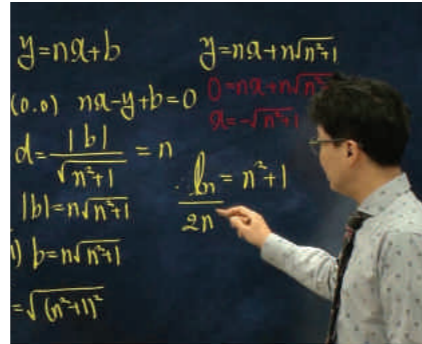 y=nx+b
(0.0) nx-y+b=0
d=|b|/√(n²+1)=n
|b|=n√(n²+1)
1) b=n√(n²+1)
=√((n²+1)²)
y=nx+n√(n²+1)
0=nx+n√n²
x=-√(n²+1)
ln=n²+1
2n